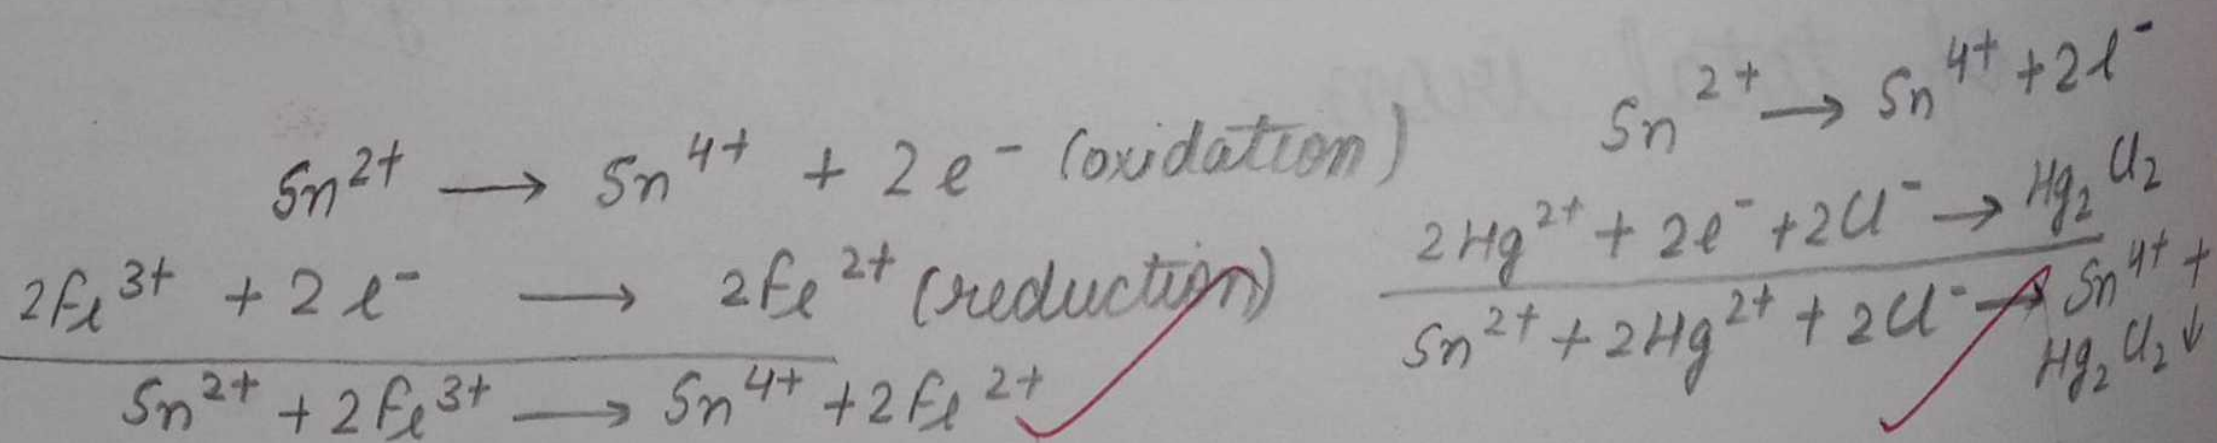 Sn²⁺ → Sn⁴⁺ + 2e⁻ (oxidation)
2Fe³⁺ + 2e⁻ → 2Fe²⁺ (reduction)
Sn²⁺ + 2Fe³⁺ → Sn⁴⁺ + 2Fe²⁺
Sn²⁺ → Sn⁴⁺ + 2e⁻
2Hg²⁺ + 2e⁻ + 2Cl⁻ → Hg₂Cl₂
Sn²⁺ + 2Hg²⁺ + 2Cl⁻ → Sn⁴⁺ +
Hg₂Cl₂↓